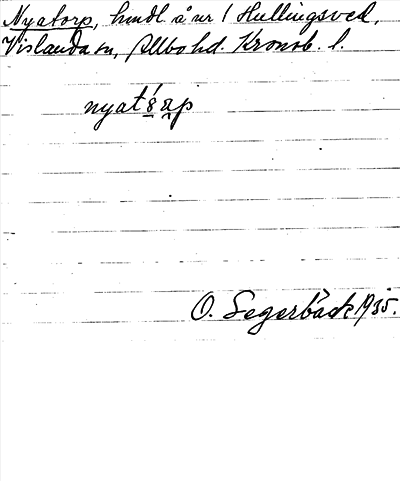 Nyatorp, hmdl å nr 1 Hullingsved,
Vislanda sn, Allbo hd. Kronob. l.
O. Segerbäck 1935.